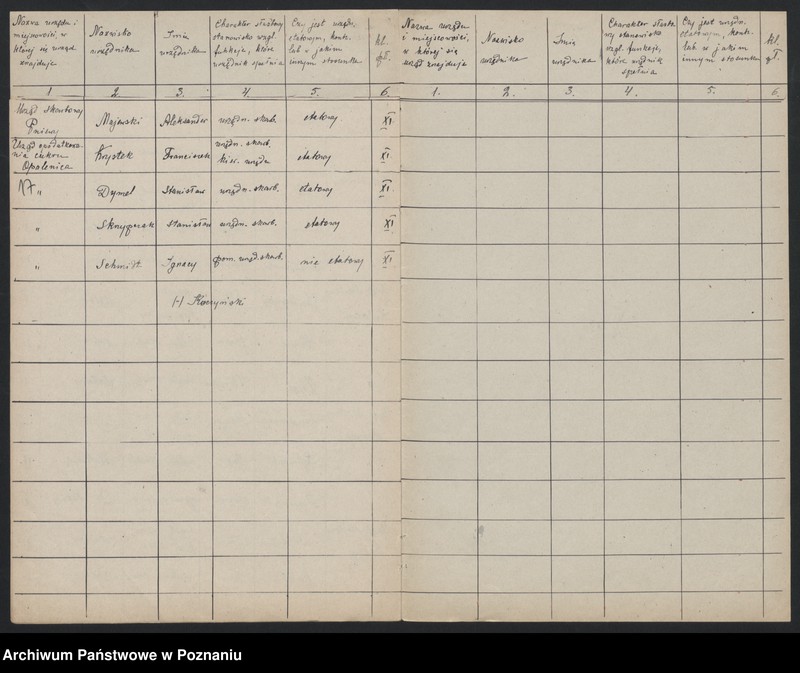 Nazwa urzędu i
miejscowości, w
której się urząd
znajduje
Nazwisko
urzędnika
Imię
urzędnika
Charakter służbowy
stanowisko wzgl.
funkcje, które
urzędnik spełnia
Czy jest urzędn.
etatowym, kontr.
lub w jakim
innym stosunku
kl.
gł.
Nazwa urzędu
i miejscowości,
w której się
urząd znajduje
Nazwisko
urzędnika
Imię
urzędnika
Charakter służbo
wy stanowisko
wzgl. funkcje,
które urzędnik
spełnia
Czy jest urzędn.
etatowym, kontr.
lub w jakim
innym stosunku
kl.
gł.
1 2. 3. 4. 5. 6. 1. 2. 3. 4. 5. 6.
Urząd skarbowy
Pniewy
Majewski Aleksander urzędn. skarb. etatowy XI
Urząd opodatkowa-
nia cukru
Opalenica
Krystek Franciszek urzędn. skarb.
kier. urzędu
etatowy XI
" Dymel Stanisław urzędn. skarb. etatowy XI
" Skrzypczak Stanisław urzędn. skarb. etatowy XI
" Schmidt Ignacy pom. urzęd. skarb. nie etatowy XI
(-) Kuczyński
Archiwum Państwowe w Poznaniu